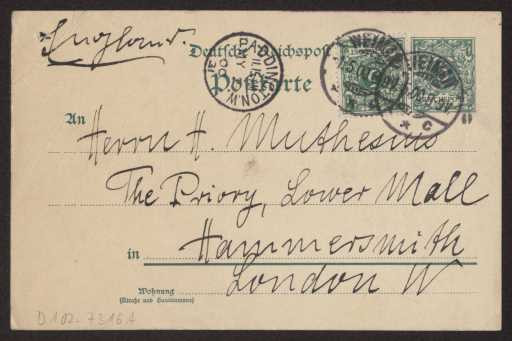 England.
Deutsche Reichspost
Postkarte
PADDINGTON.W.
MY 7
An
Herrn H. Muthesius
The Priory, Lower Mall
in Hammersmith
London W
Wohnung
(Straße und Hausnummer)
D 102-7316A